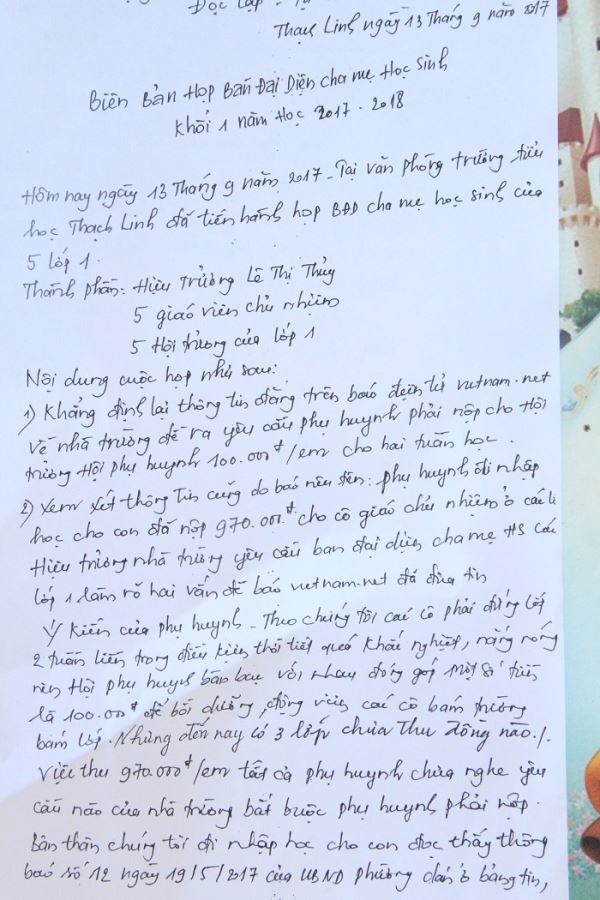 Độc lập - Tự
Thạch Linh ngày 13 Tháng 9 năm 2017
Biên Bản Họp Ban Đại Diện cha mẹ Học Sinh
Khối 1 năm Học 2017 - 2018
Hôm nay ngày 13 Tháng 9 năm 2017 - Tại văn phòng trường tiểu
học Thạch Linh đã tiến hành họp BĐD cha mẹ học sinh của
5 lớp 1.
Thành phần: Hiệu Trưởng Lê Thị Thủy
5 giáo viên chủ nhiệm
5 Hội trưởng của lớp 1
Nội dung cuộc họp như sau:
1) Khẳng định lại thông tin đăng trên báo điện tử vietnam.net
về nhà trường đề ra yêu cầu phụ huynh phải nộp cho Hội
trưởng Hội phụ huynh 100.000đ/em cho hai tuần học.
2) Xem xét thông tin cũng do báo nêu tên: phụ huynh đi nhập
học cho con đã nộp 970.000đ cho cô giáo chủ nhiệm ở các
Hiệu trưởng nhà trường yêu cầu ban đại diện cha mẹ HS các
lớp 1 làm rõ hai vấn đề báo vietnam.net đã đưa tin
Ý kiến của phụ huynh - Theo chúng tôi các cô phải đứng lớp
2 tuần liền trong điều kiện thời tiết quá khắc nghiệt, nắng nóng
nên Hội phụ huynh bàn bạc với nhau đóng góp một số tiền
là 100.000đ để bồi dưỡng, động viên các cô bám trường
bám lớp. Nhưng đến nay có 3 lớp chưa thu đồng nào./.
Việc thu 970.000đ/em tất cả phụ huynh chưa nghe yêu
cầu nào của nhà trường bắt buộc phụ huynh phải nộp.
Bản thân chúng tôi đi nhập học cho con đọc thấy thông
báo số 12 ngày 19/5/2017 của UBND phường dán ở bảng tin,